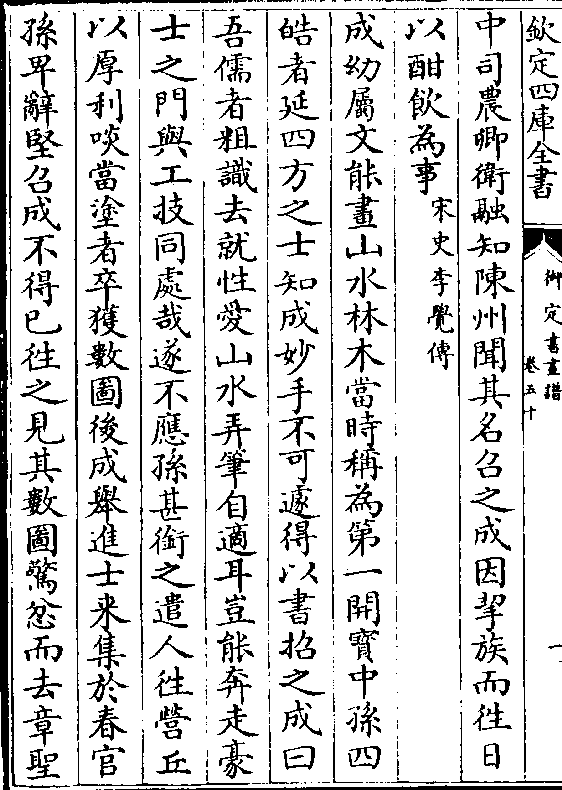 欽定四庫全書
御定書畫譜
卷五十
一
中司農卿衛融知陳州聞其名召之成因挈族而徃日
以酣飲為事宋史李覺傳
成幼屬文能畫山水林木當時稱為第一開寳中孫四
皓者延四方之士知成妙手不可遽得以書招之成曰
吾儒者粗識去就性愛山水弄筆自適耳豈能奔走豪
士之門與工技同處哉遂不應孫甚銜之遣人徃營丘
以厚利啖當塗者卒獲數圖後成舉進士来集於春官
孫卑辭堅召成不得已徃之見其數圖驚忿而去章聖